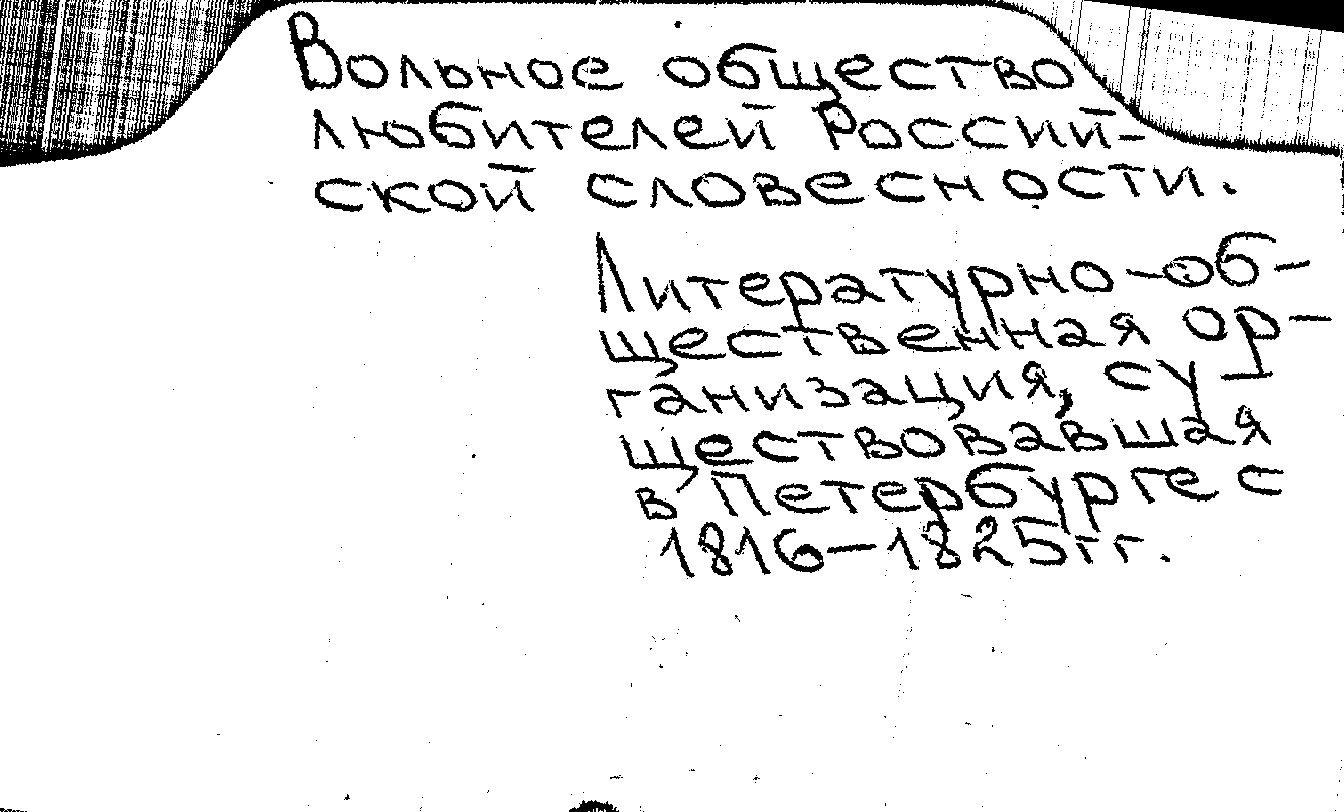 Вольное общество
любителей Россий-
ской словесности.
Литературно-об-
щественная ор-
ганизация, су-
ществовавшая
в Петербурге с
1816-1825гг.